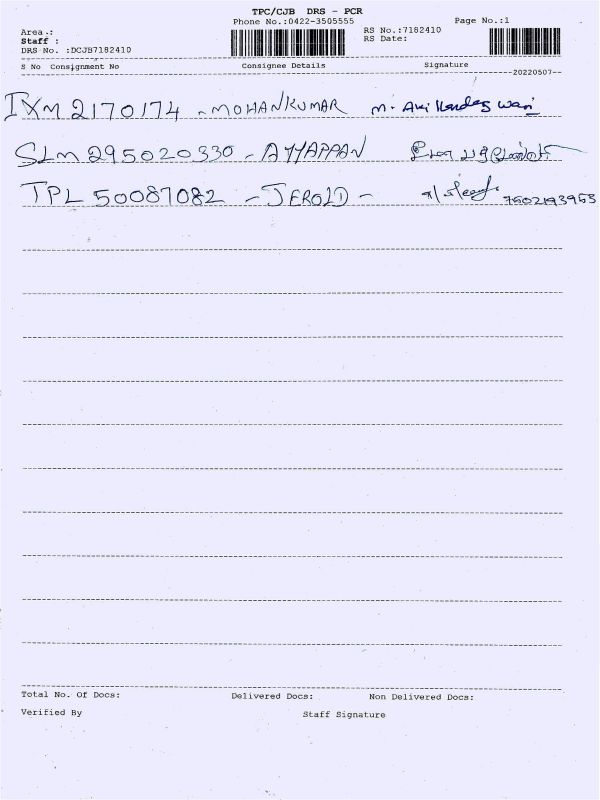 TPC/CJB DRS - PCR
Phone No.:0422-3505555
Page No.:1
Area.:
Staff :
DRS No. :DCJB7182410
RS No.:7182410
RS Date:
S No Consignment No Consignee Details Signature
20220507
IXM 2170174 - MOHANKUMAR M.
SLM 295020330 - AYYAPPAN
TPL 50087082 - JEROLD - 7502193953
Total No. Of Docs: Delivered Docs: Non Delivered Docs:
Verified By Staff Signature